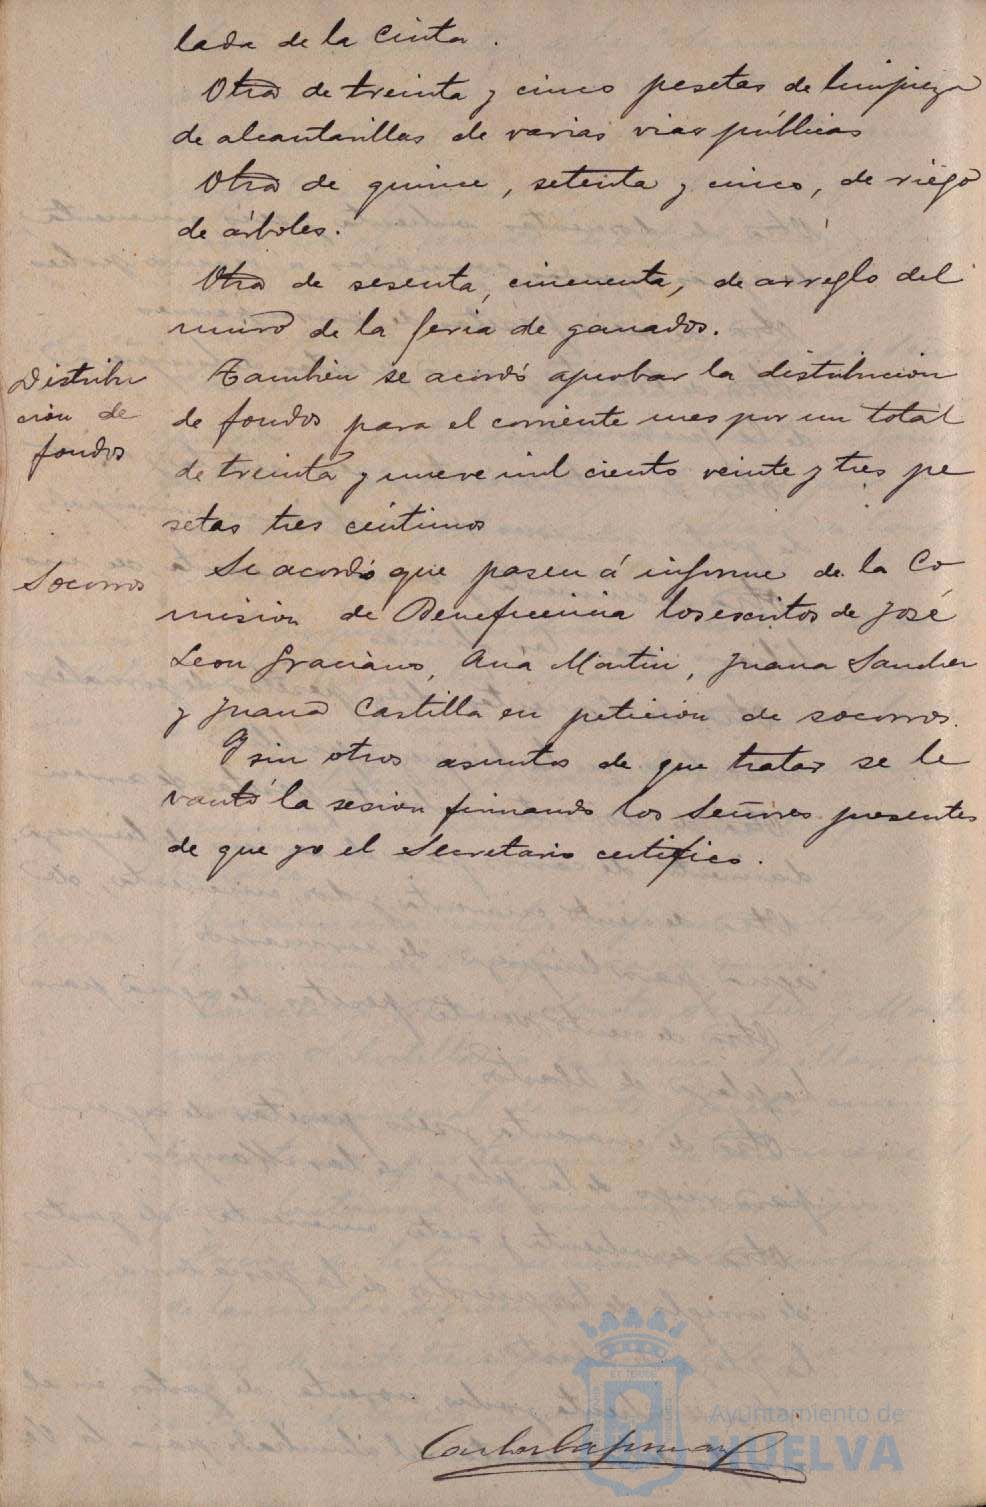 lada de la Cinta.
Otra de treinta y cinco pesetas de limpieza
de alcantarillas de varias vias públicas
Otra de quince, setenta y cinco, de riego
de árboles.
Otra de sesenta, cincuenta, de arreglo del
muro de la feria de ganados.
Distribu
cion de
fondos
Tambien se acordó aprobar la distribucion
de fondos para el corriente mes por un total
de treinta y nueve mil ciento veinte y tres pe
setas tres centimos
Socorros
Se acordó que pasen á informe de la Co
mision de Beneficencia los escritos de José
Leon Graciano, Ana Martin, Juana Sanchez
y Juana Castilla en peticion de socorros.
Y sin otros asuntos de que tratar se le
vantó la sesion firmando los Señores presentes
de que yo el Secretario certifico.
Ayuntamiento de
HUELVA